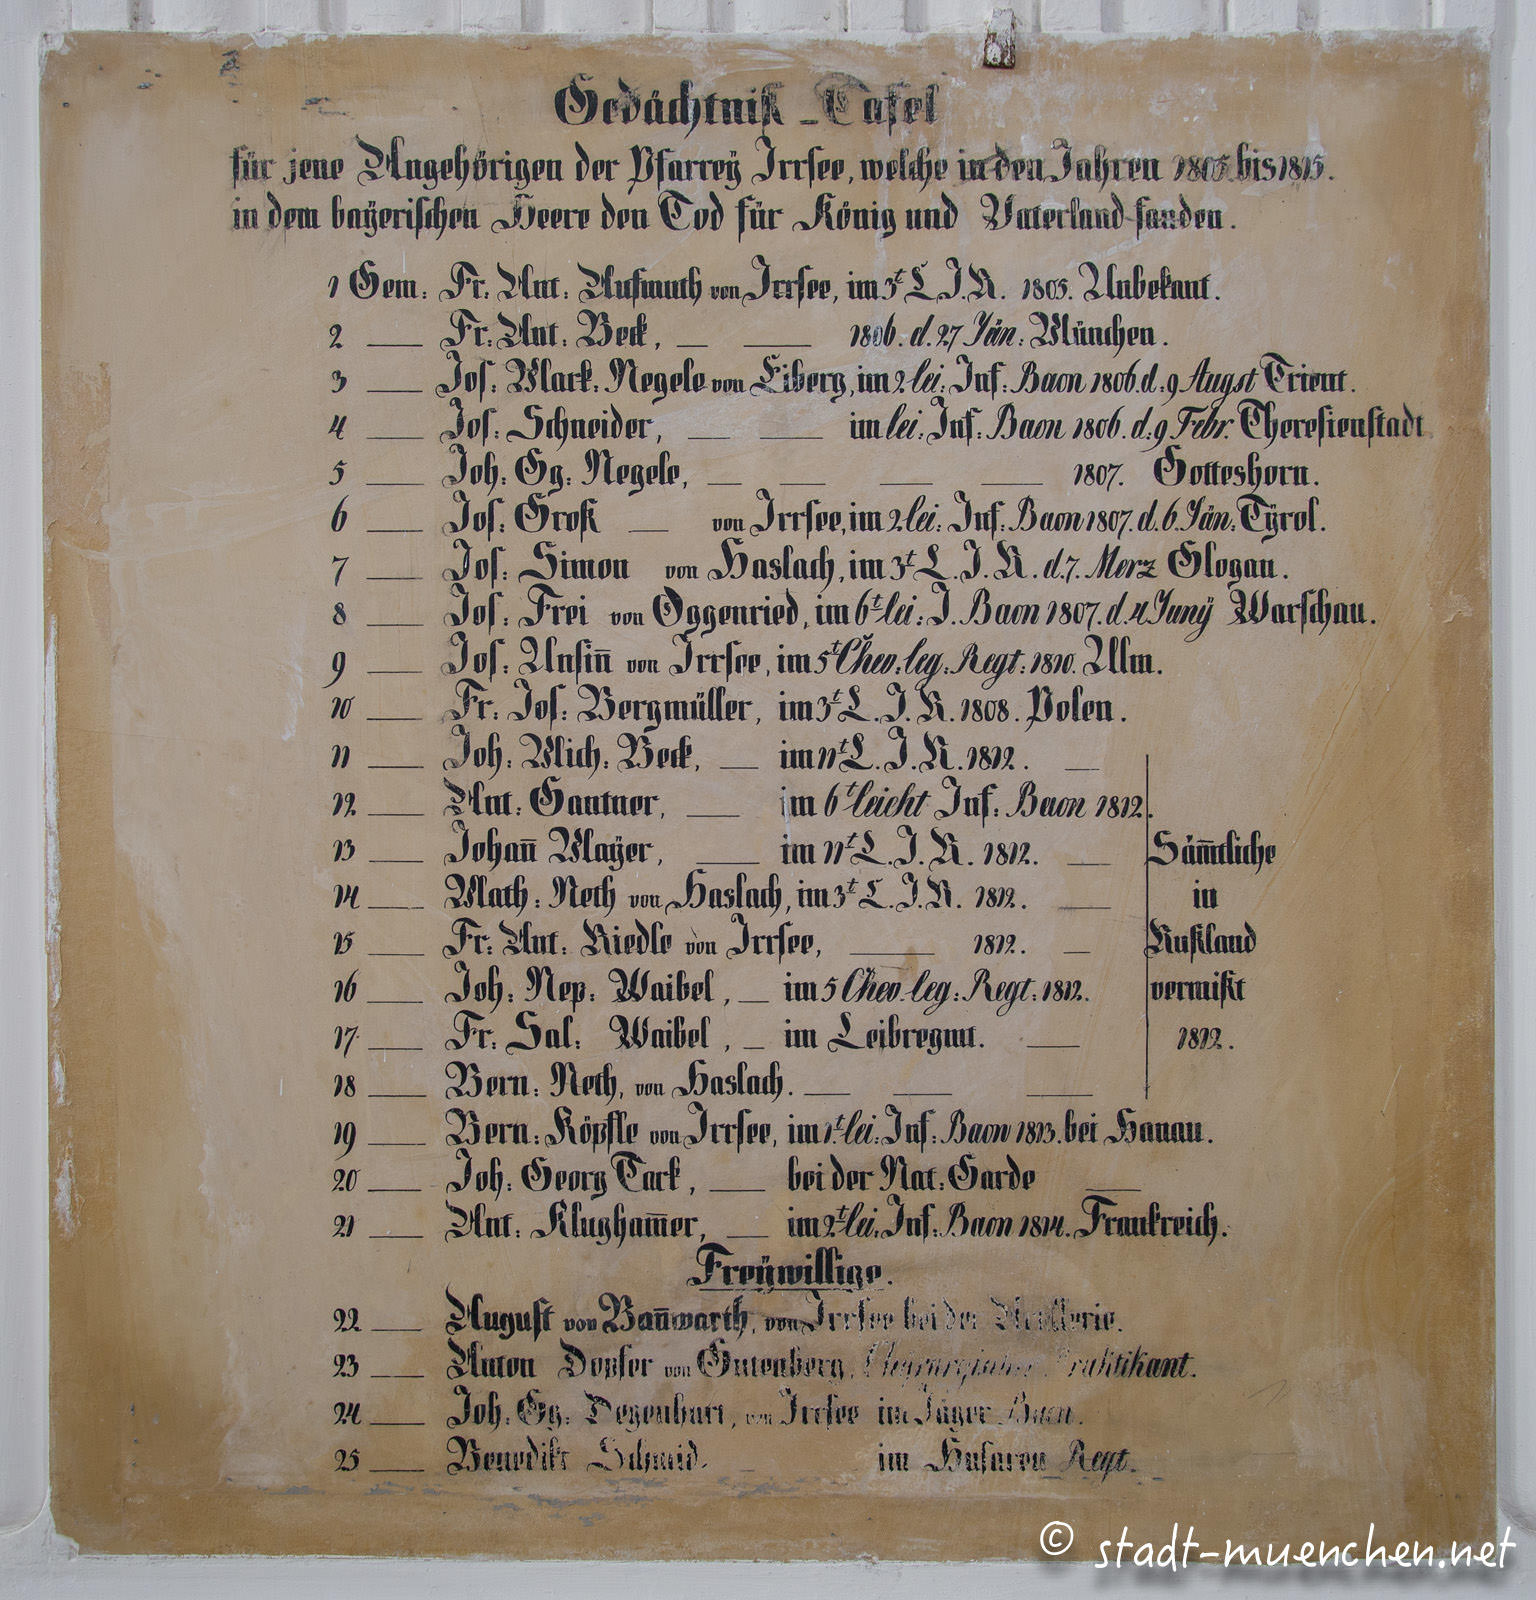 Gedächtniß - Tafel
für jene Angehörigen der Pfarreÿ Irrsee, welche in den Jahren 1805 bis 1815.
in dem bayerischen Heere den Tod für König und Vaterland fanden.
1 Gem: Fr: Ant: Aufmuth von Irrsee, im 3t L. I. R. 1805. Unbekant.
2 — Fr: Ant: Beck, — — 1806. d. 27 Jän: München.
3 — Jos: Mark: Negele von Eiberg, im 2 lei: Inf: Baon 1806. d: 9 Augst Trient.
4 — Jos: Schneider, — — im lei: Inf: Baon 1806. d: 9 Febr. Theresienstadt
5 — Joh: Gg: Negele, — — — — 1807. Gotteshorn.
6 — Jos: Groß — von Irrsee, im 2 lei: Inf: Baon 1807. d. 6. Jän: Tÿrol.
7 — Jos: Simon von Haslach, im 3t L. I. R. d. 7. Merz Glogau.
8 — Jos: Frei von Oggenried, im 6t lei: I. Baon 1807. d. 4 Junÿ Warschau.
9 — Jos: Unsin̄ von Irrsee, im 5t Chev: leg: Regt: 1810. Ulm.
10 — Fr: Jos: Bergmüller, im 3t L. I. R. 1808. Polen.
11 — Joh: Mich: Beck, — im 11t L. I. R. 1812. —
12 — Ant: Gantner, — im 6t leicht Inf: Baon 1812.
13 — Johan̄ Maÿer, — im 11t L. I. R. 1812. — Säm̄tliche
14 — Math: Neth von Haslach, im 3t L. I. R. 1812. — in
15 — Fr: Ant: Riedle von Irrsee, — 1812. — Rußland
16 — Joh: Nep: Waibel, — im 5 Chev leg: Regt: 1812. vermißt
17 — Fr: Sal: Waibel, — im Leibregmt. — 1812.
18 — Bern: Neth, von Haslach. — — —
19 — Bern: Köpfle von Irrsee, im 1t lei: Inf: Baon 1813. bei Hanau.
20 — Joh: Georg Tark, — bei der Nat: Garde —
21 — Ant: Klugham̄er, — im 2t lei: Inf: Baon 1814. Frankreich.
Freÿwillige.
22 — August von Ban̄warth, von Irrsee bei der Artillerie.
23 — Anton Dopfer von Gutenberg, Praktikant.
24 — Joh: Gg: Degenhart, von Irrsee im Jäger Baon.
25 — Benedikt Schmid. — im Husaren Regt.
© stadt-muenchen.net